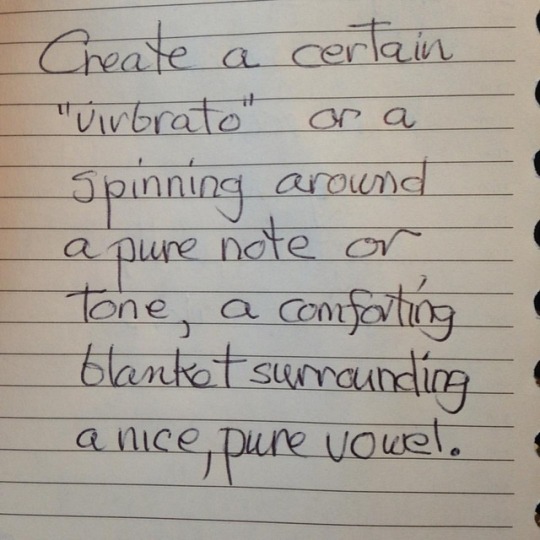 Create a certain
"virbrato" or a
spinning around
a pure note or
tone, a comforting
blanket surrounding
a nice, pure vowel.